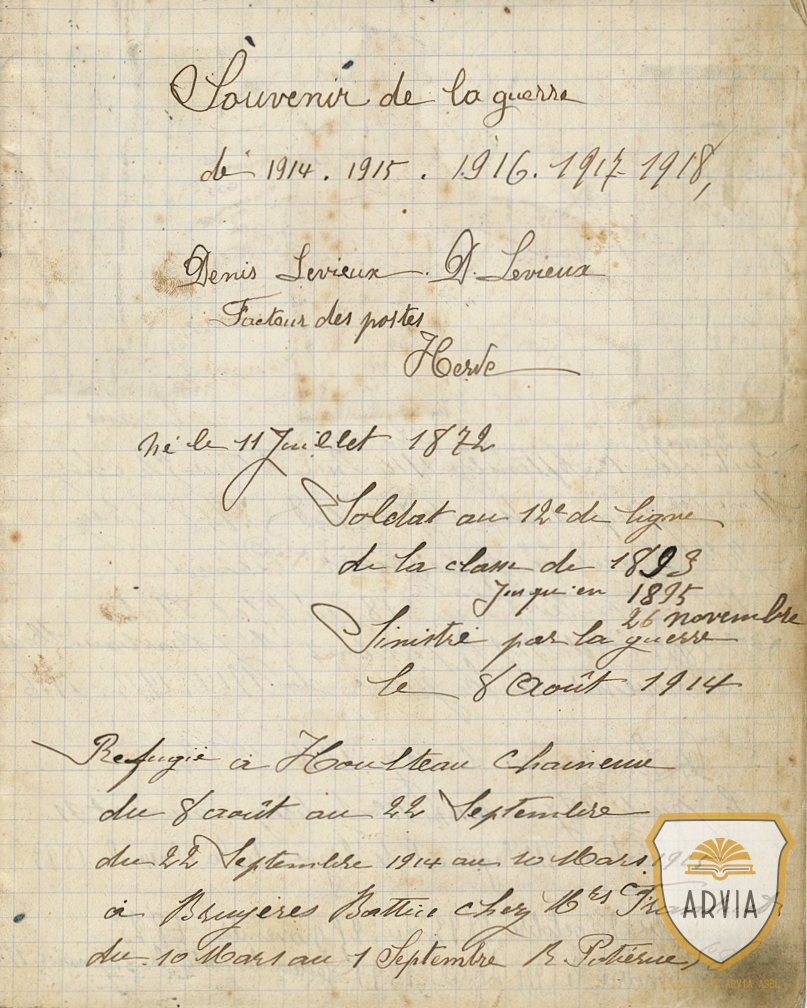 Souvenir de la guerre
de 1914. 1915. 1916. 1917 1918,
Denis Levieux. D. Levieux
Facteur des postes
Herve
né le 11 Juillet 1872
Soldat au 12e de ligne
de la classe de 1893
Jusqu'en 1895
26 novembre
Sinistré par la guerre
le 8 Août 1914
Refugié à Houlteau Chaineux
du 8 août au 22 Septembre
du 22 Septembre 1914 au 10 Mars
à Bruyères Battice chez
du 10 Mars au 1 Septembre R.
ARVIA